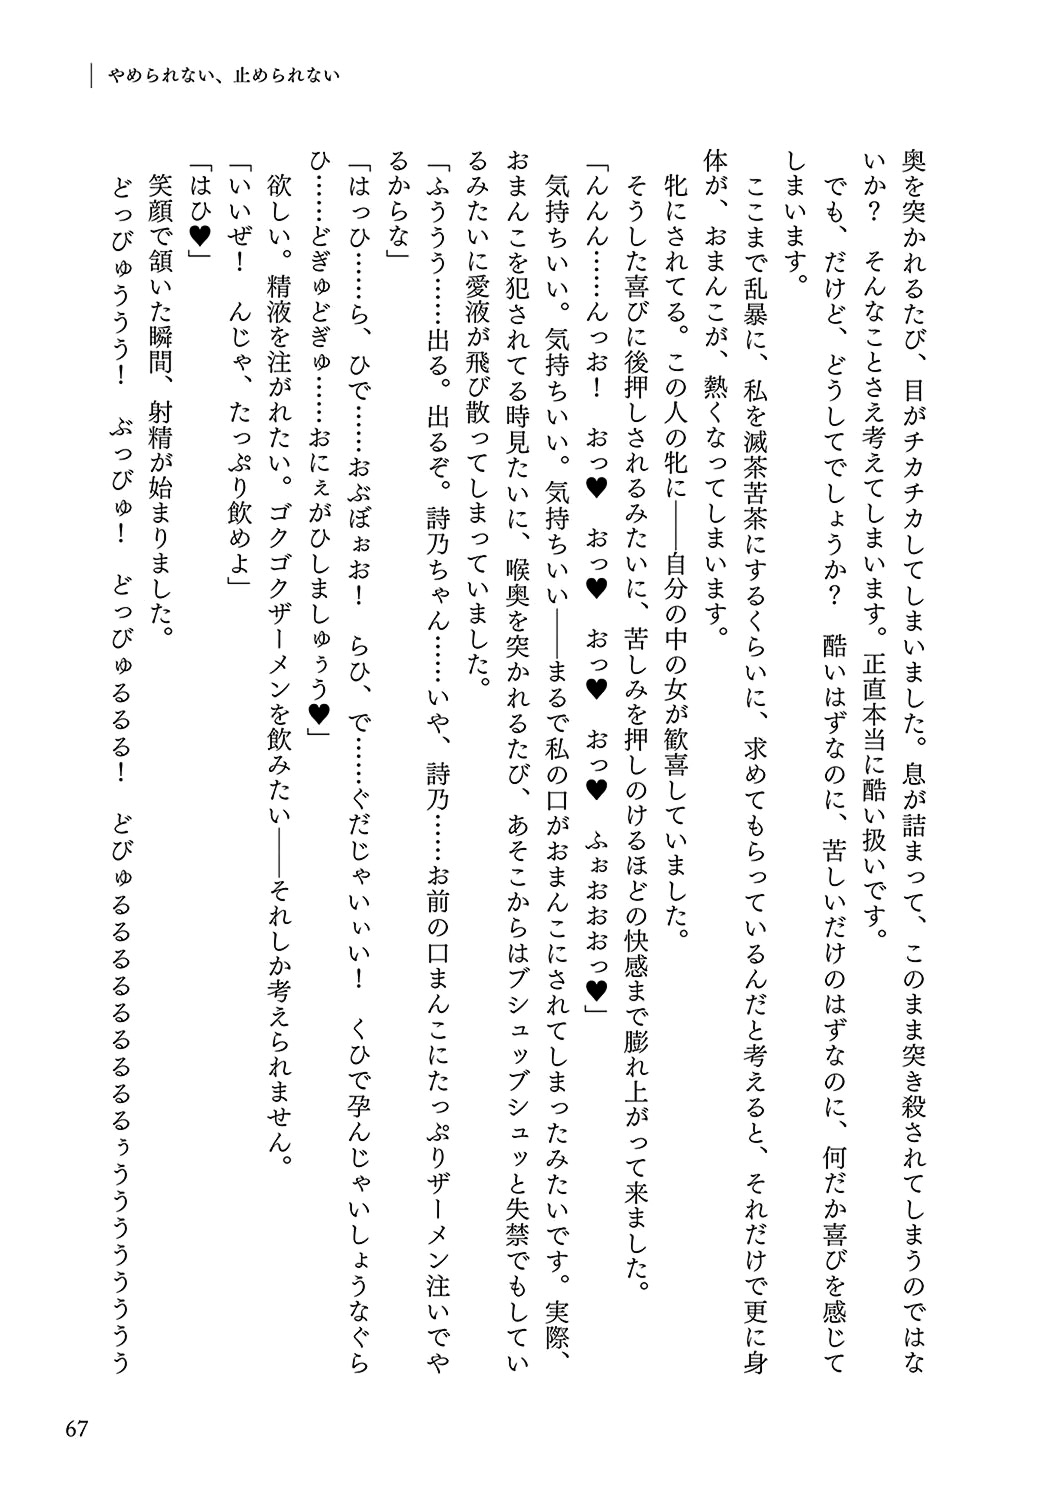 やめられない、止められない
奥を突かれるたび、目がチカチカしてしまいました。息が詰まって、このまま突き殺されてしまうのではな
いか？　そんなことさえ考えてしまいます。正直本当に酷い扱いです。
でも、だけど、どうしてでしょうか？　酷いはずなのに、苦しいだけのはずなのに、何だか喜びを感じて
しまいます。
ここまで乱暴に、私を滅茶苦茶にするくらいに、求めてもらっているんだと考えると、それだけで更に身
体が、おまんこが、熱くなってしまいます。
牝にされてる。この人の牝に――自分の中の女が歓喜していました。
そうした喜びに後押しされるみたいに、苦しみを押しのけるほどの快感まで膨れ上がって来ました。
「んんん……んっお！　おっ♥　おっ♥　おっ♥　おっ♥　ふぉおおおっ♥」
気持ちいい。気持ちいい。気持ちいい――まるで私の口がおまんこにされてしまったみたいです。実際、
おまんこを犯されてる時見たいに、喉奥を突かれるたび、あそこからはブシュッブシュッと失禁でもしてい
るみたいに愛液が飛び散ってしまっていました。
「ふううう……出る。出るぞ。詩乃ちゃん……いや、詩乃……お前の口まんこにたっぷりザーメン注いでや
るからな」
「はっひ……ら、ひで……おぶぼぉお！　らひ、で……ぐだじゃいぃい！　くひで孕んじゃいしょうなぐら
ひ……どぎゅどぎゅ……おにぇがひしましゅうう♥」
欲しい。精液を注がれたい。ゴクゴクザーメンを飲みたい――それしか考えられません。
「いいぜ！　んじゃ、たっぷり飲めよ」
「はひ♥」
笑顔で頷いた瞬間、射精が始まりました。
どっびゅうう！　ぶっびゅ！　どっびゅるるる！　どびゅるるるるるるるるぅうううううううう
67